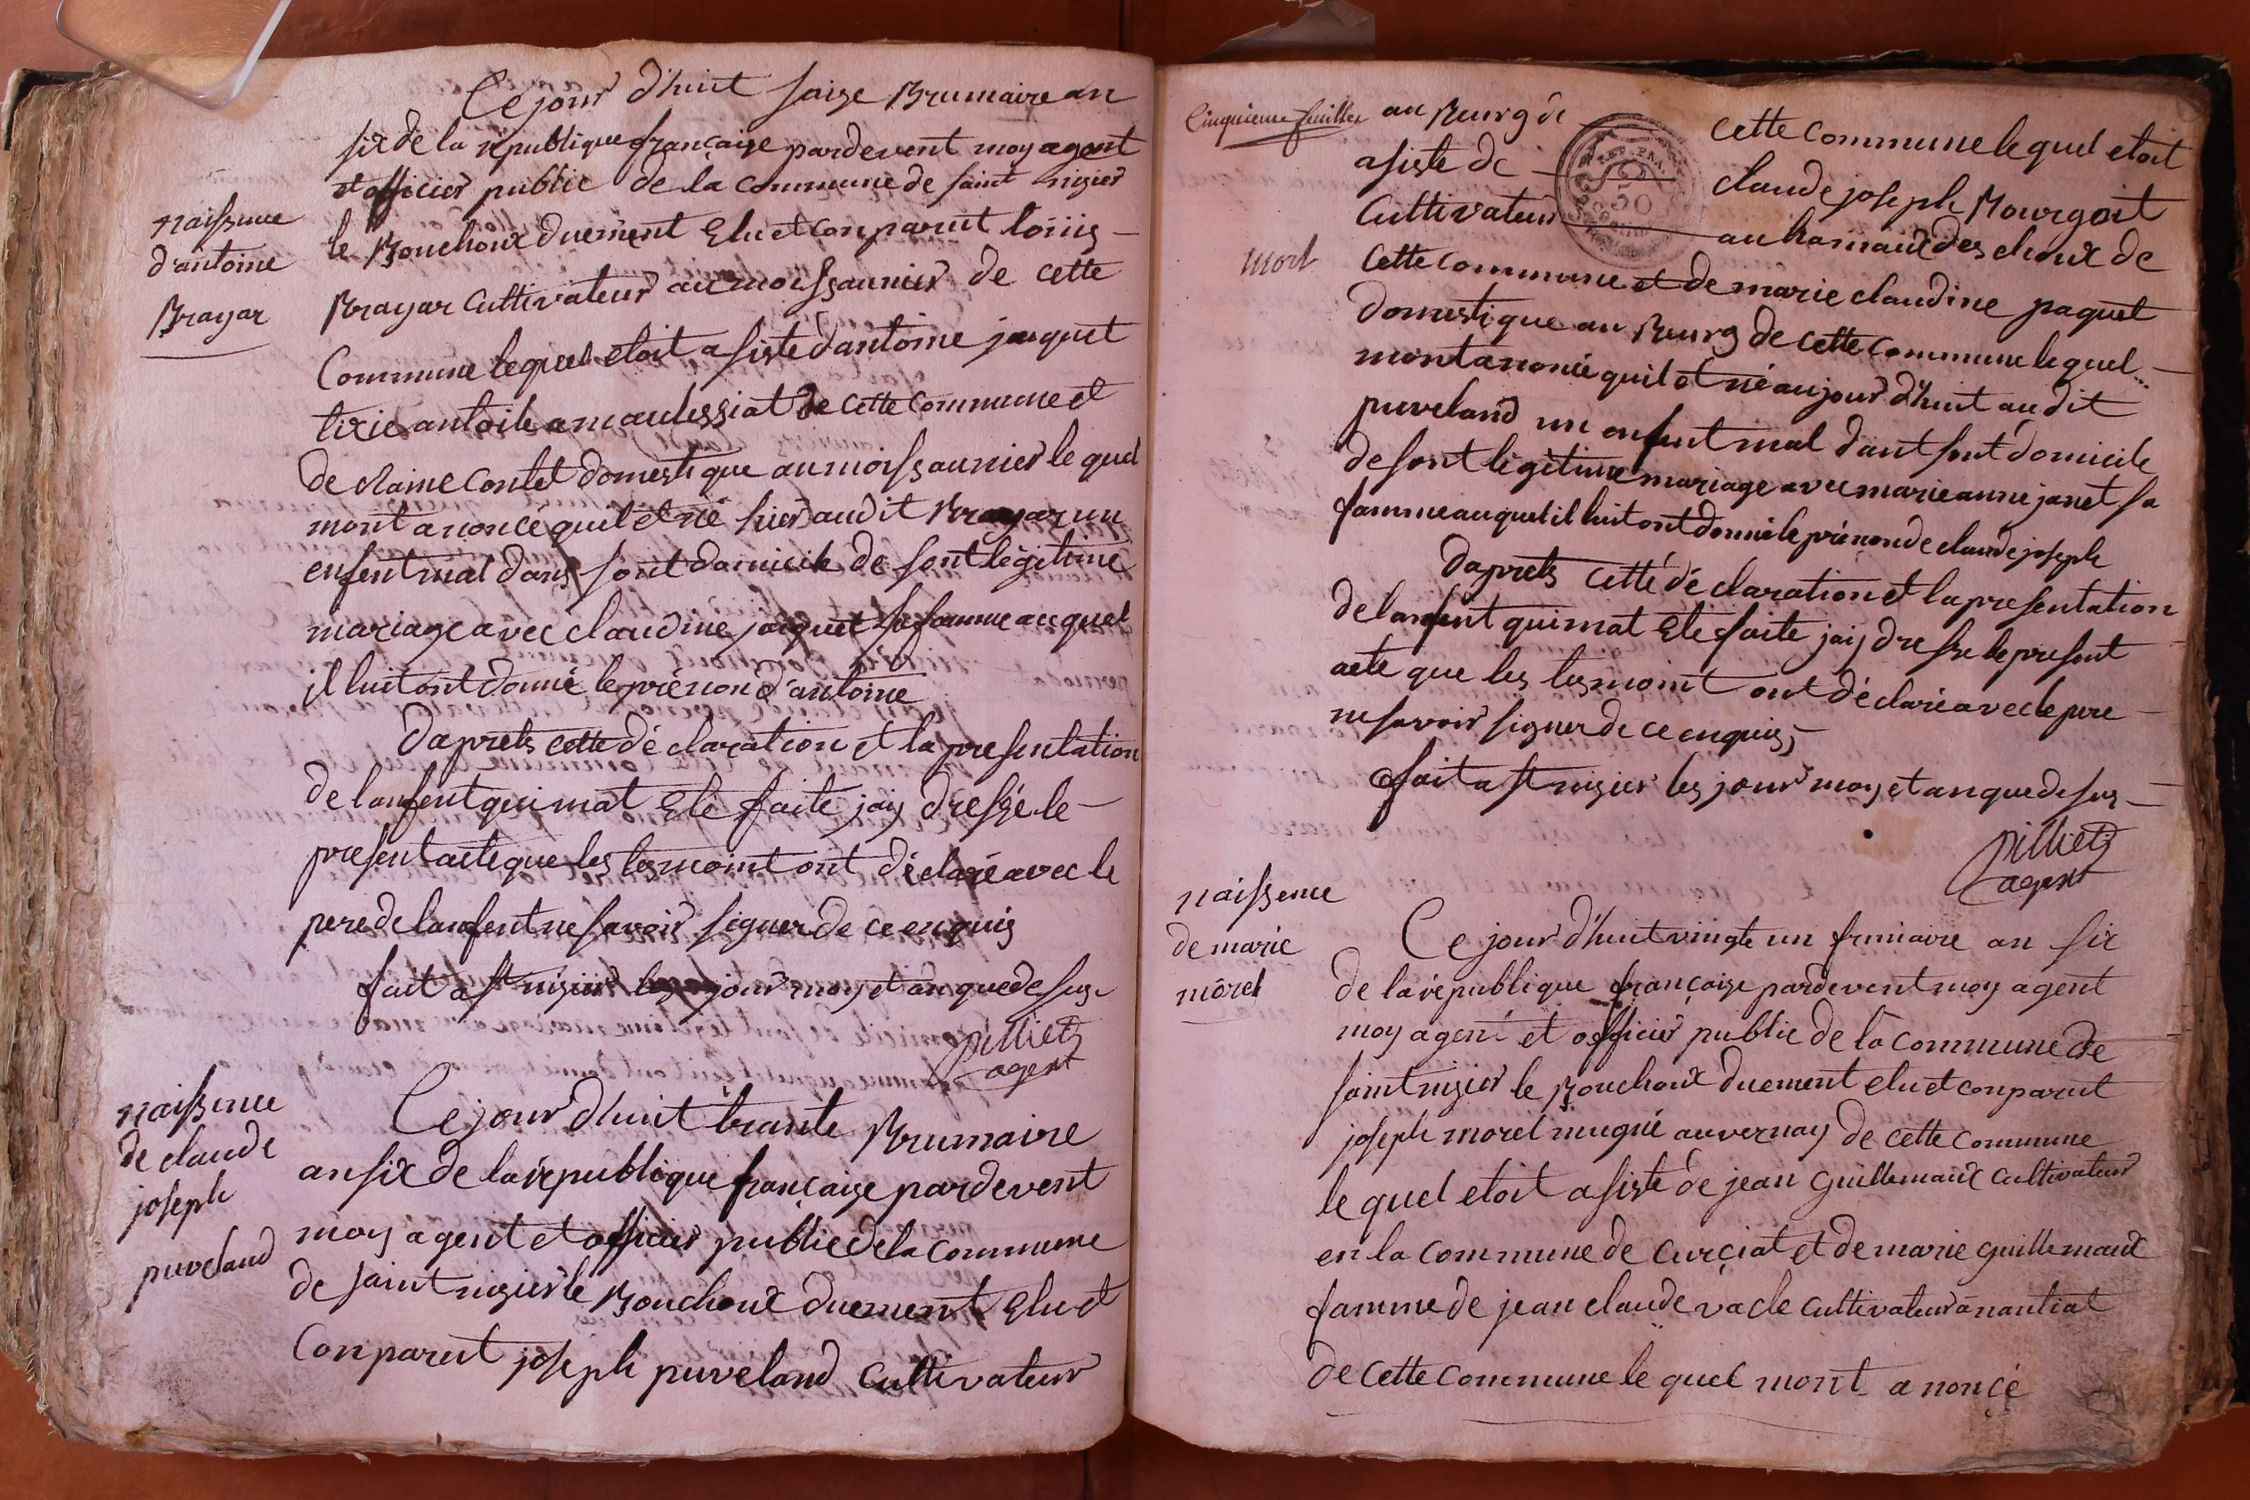 Ce jour d'huit saize Brumaire an
six de la republique françaize pardevent moy agent
et officier public de la commune de saint nizier
naissence
d'antoine
Brayar
le Bouchoux duement Elu et conparut loüis
Brayar cultivateur au moissaunier de cette
Commune lequel etoit asisté d'antoine jaquet
tixie antoile a maulessiat de cette commune et
de claine contet domestique au moissaunier le quel
mont anoncé quil et né hier au dit Brayar un
enfent mal dans sont domicile de sont légitime
mariage avec claudine jaquet sa famme au quel
il luit ont donné le prénon d'antoine
Daprets cette dé claration et la presentation
de lanfent qui mat Eté faite jaiy dressé le
present acte que les tesmoint ont déclaré avec le
pere de lanfent ne savoir signer de ce enquis
fait a st nizier les jour moy et an que de sus
pilliet
agent
naissence
de claude
joseph
puveland
Ce jour d'huit trante Brumaire
an six de la république françaize pardevent
moy agent et officier public de la commune
de saint nizier le Bouchoux duement Elu et
Conparut joseph puveland cultivateur
Cinquieme feuillet
au Bourg de cette commune le quel etoit
asiste de claude joseph Bourgoit
Cultivateur au hamaux des choux de
mort
cette commune et de marie claudine paquet
domestique au Bourg de cette commune le quel
mont anoncé quil et né aujour d'huit au dit
puveland un enfent mal dant sont domicile
de sont légitime mariage avec marie anne janet sa
famme au quel il luit ont donné le prénon de claude joseph
Daprets cetté dé claration et la presentation
de lanfent qui mat Eté faite jaiy dressé le present
acte que les tesmoint ont déclaré avec le pere
ne savoir signer de ce enquis
fait a st nizier les jour moy et an que de sus
pilliet
agent
naissence
de marie
morel
Ce jour d'huit vingte un frimaire an six
de la république françaize pardevent moy agent
moy agent et officier public de la commune de
saint nizier le Bouchoux duement elu et conparut
joseph morel mugnié au vernay de cette commune
le quel etoit asisté de jean guillemaux cultivateur
en la commune de curciat et de marie guillemaux
famme de jean claude vacle cultivateur a nantiat
de cette commune le quel mont a noncé